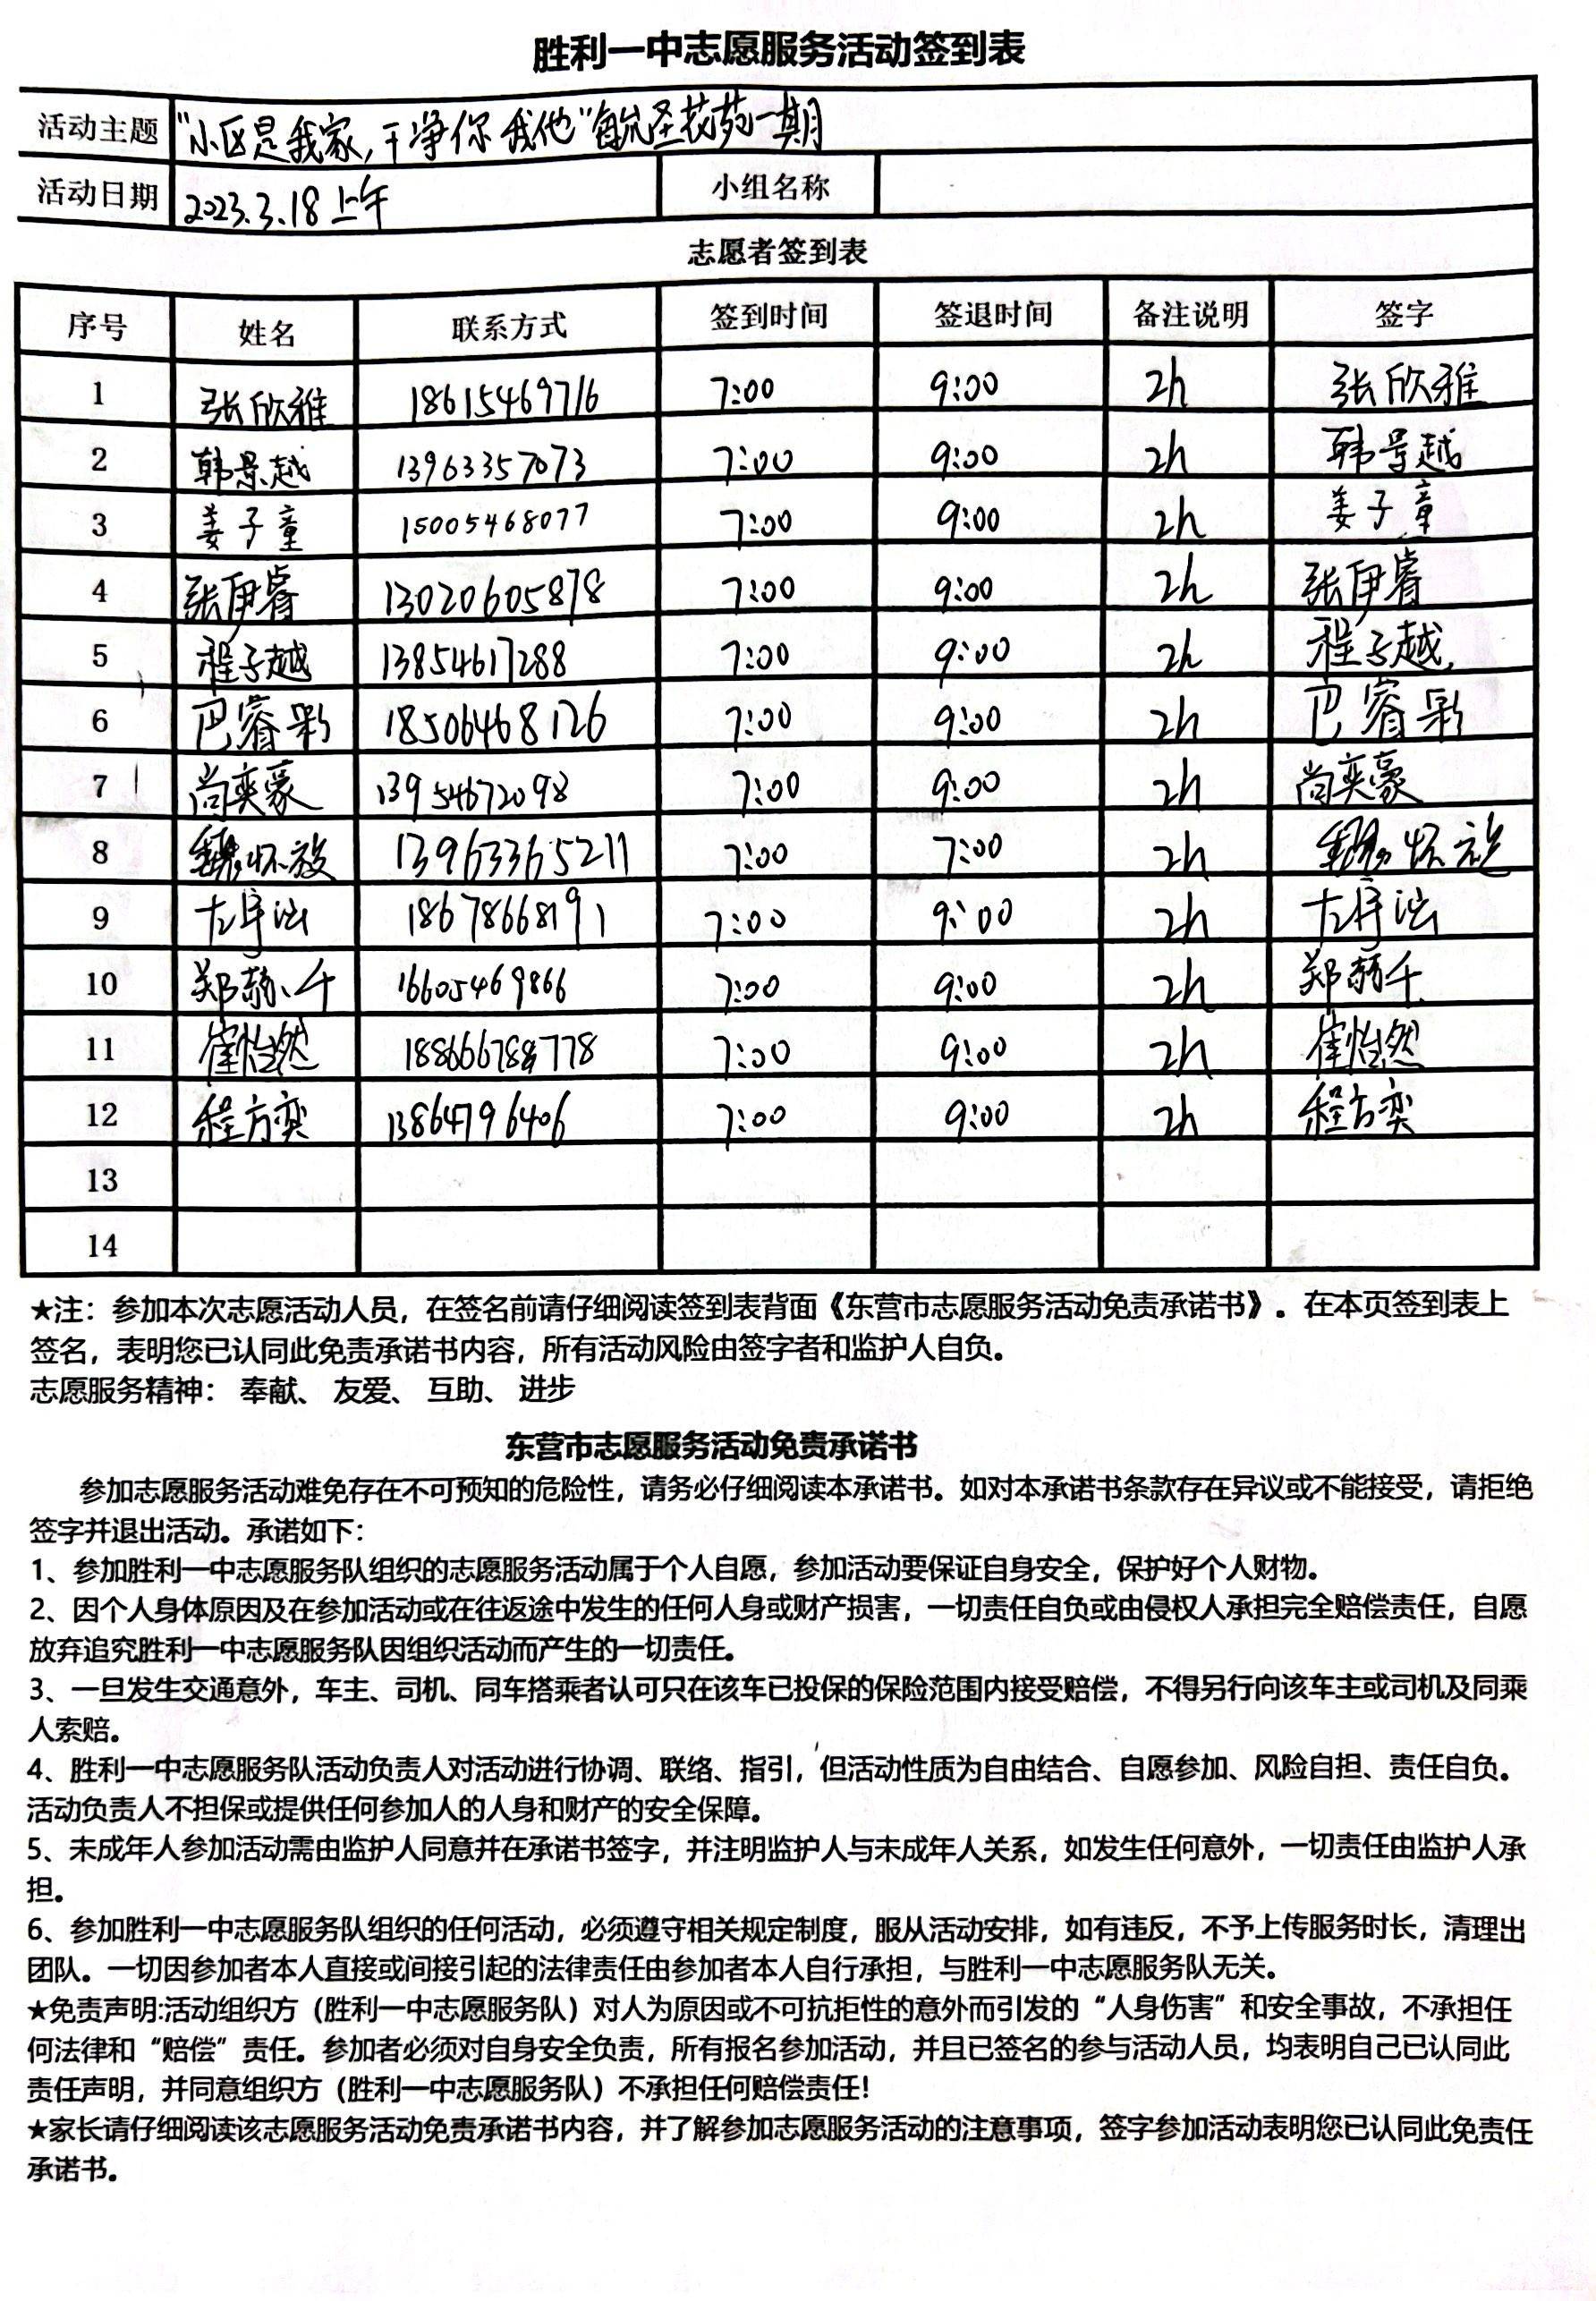 胜利一中志愿服务活动签到表
活动主题 "小区是我家,干净你我他"毓圣花苑一期
活动日期 2023.3.18上午 小组名称
志愿者签到表
序号 姓名 联系方式 签到时间 签退时间 备注说明 签字
1 张欣雅 18615469716 7:00 9:00 2h 张欣雅
2 韩景越 13963357073 7:00 9:00 2h 韩景越
3 姜子童 15005468077 7:00 9:00 2h 姜子童
4 张伊睿 13020605878 7:00 9:00 2h 张伊睿
5 程子越 13854617288 7:00 9:00 2h 程子越
6 巴睿彩 18506468126 7:00 9:00 2h 巴睿彩
7 尚奕豪 13954672098 7:00 9:00 2h 尚奕豪
8 魏怀放 13963365211 7:00 7:00 2h 魏怀放
9 18678668191 7:00 9:00 2h
10 郑赫千 16605469866 7:00 9:00 2h 郑赫千
11 崔怡然 7:00 9:00 2h 崔怡然
12 程方奕 13864796406 7:00 9:00 2h 程方奕
13
14
★注：参加本次志愿活动人员，在签名前请仔细阅读签到表背面《东营市志愿服务活动免责承诺书》。在本页签到表上
签名，表明您已认同此免责承诺书内容，所有活动风险由签字者和监护人自负。
志愿服务精神： 奉献、 友爱、 互助、 进步
东营市志愿服务活动免责承诺书
参加志愿服务活动难免存在不可预知的危险性，请务必仔细阅读本承诺书。如对本承诺书条款存在异议或不能接受，请拒绝
签字并退出活动。承诺如下：
1、参加胜利一中志愿服务队组织的志愿服务活动属于个人自愿，参加活动要保证自身安全，保护好个人财物。
2、因个人身体原因及在参加活动或在往返途中发生的任何人身或财产损害，一切责任自负或由侵权人承担完全赔偿责任，自愿
放弃追究胜利一中志愿服务队因组织活动而产生的一切责任。
3、一旦发生交通意外，车主、司机、同车搭乘者认可只在该车已投保的保险范围内接受赔偿，不得另行向该车主或司机及同乘
人索赔。
4、胜利一中志愿服务队活动负责人对活动进行协调、联络、指引，但活动性质为自由结合、自愿参加、风险自担、责任自负。
活动负责人不担保或提供任何参加人的人身和财产的安全保障。
5、未成年人参加活动需由监护人同意并在承诺书签字，并注明监护人与未成年人关系，如发生任何意外，一切责任由监护人承
担。
6、参加胜利一中志愿服务队组织的任何活动，必须遵守相关规定制度，服从活动安排，如有违反，不予上传服务时长，清理出
团队。一切因参加者本人直接或间接引起的法律责任由参加者本人自行承担，与胜利一中志愿服务队无关。
★免责声明:活动组织方（胜利一中志愿服务队）对人为原因或不可抗拒性的意外而引发的“人身伤害”和安全事故，不承担任
何法律和“赔偿”责任。参加者必须对自身安全负责，所有报名参加活动，并且已签名的参与活动人员，均表明自己已认同此
责任声明，并同意组织方（胜利一中志愿服务队）不承担任何赔偿责任！
★家长请仔细阅读该志愿服务活动免责承诺书内容，并了解参加志愿服务活动的注意事项，签字参加活动表明您已认同此免责任
承诺书。